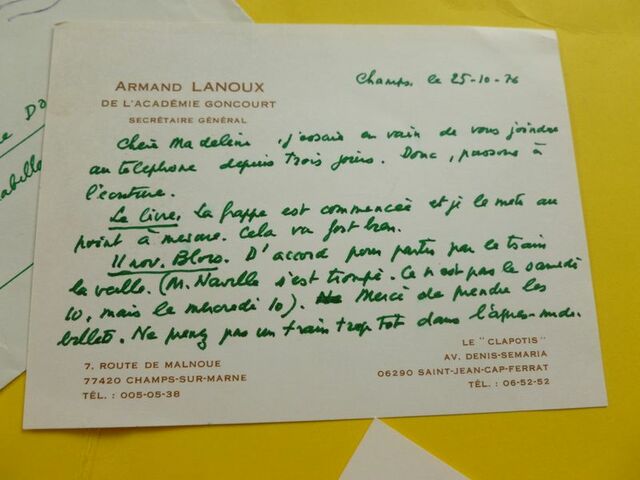 ARMAND LANOUX
DE L'ACADÉMIE GONCOURT
SECRÉTAIRE GÉNÉRAL
Champs, le 25-10-76
Chère Madeleine, j'essaie en vain de vous joindre
au téléphone depuis trois jours. Donc, passons à
l'écriture.
Le livre. La frappe est commencée et je le mets au
point à mesure. Cela va fort bien.
11 nov. Blois. D'accord pour partir par le train
la veille. (M. Naville s'est trompé. Ce n'est pas le samedi
10, mais le mercredi 10). Merci de prendre les
billets. Ne prenez pas un train trop tôt dans l'après-midi.
7. ROUTE DE MALNOUE
77420 CHAMPS-SUR-MARNE
TÉL. : 005-05-38
LE "CLAPOTIS"
AV. DENIS-SEMARIA
06290 SAINT-JEAN-CAP-FERRAT
TÉL. : 06-52-52